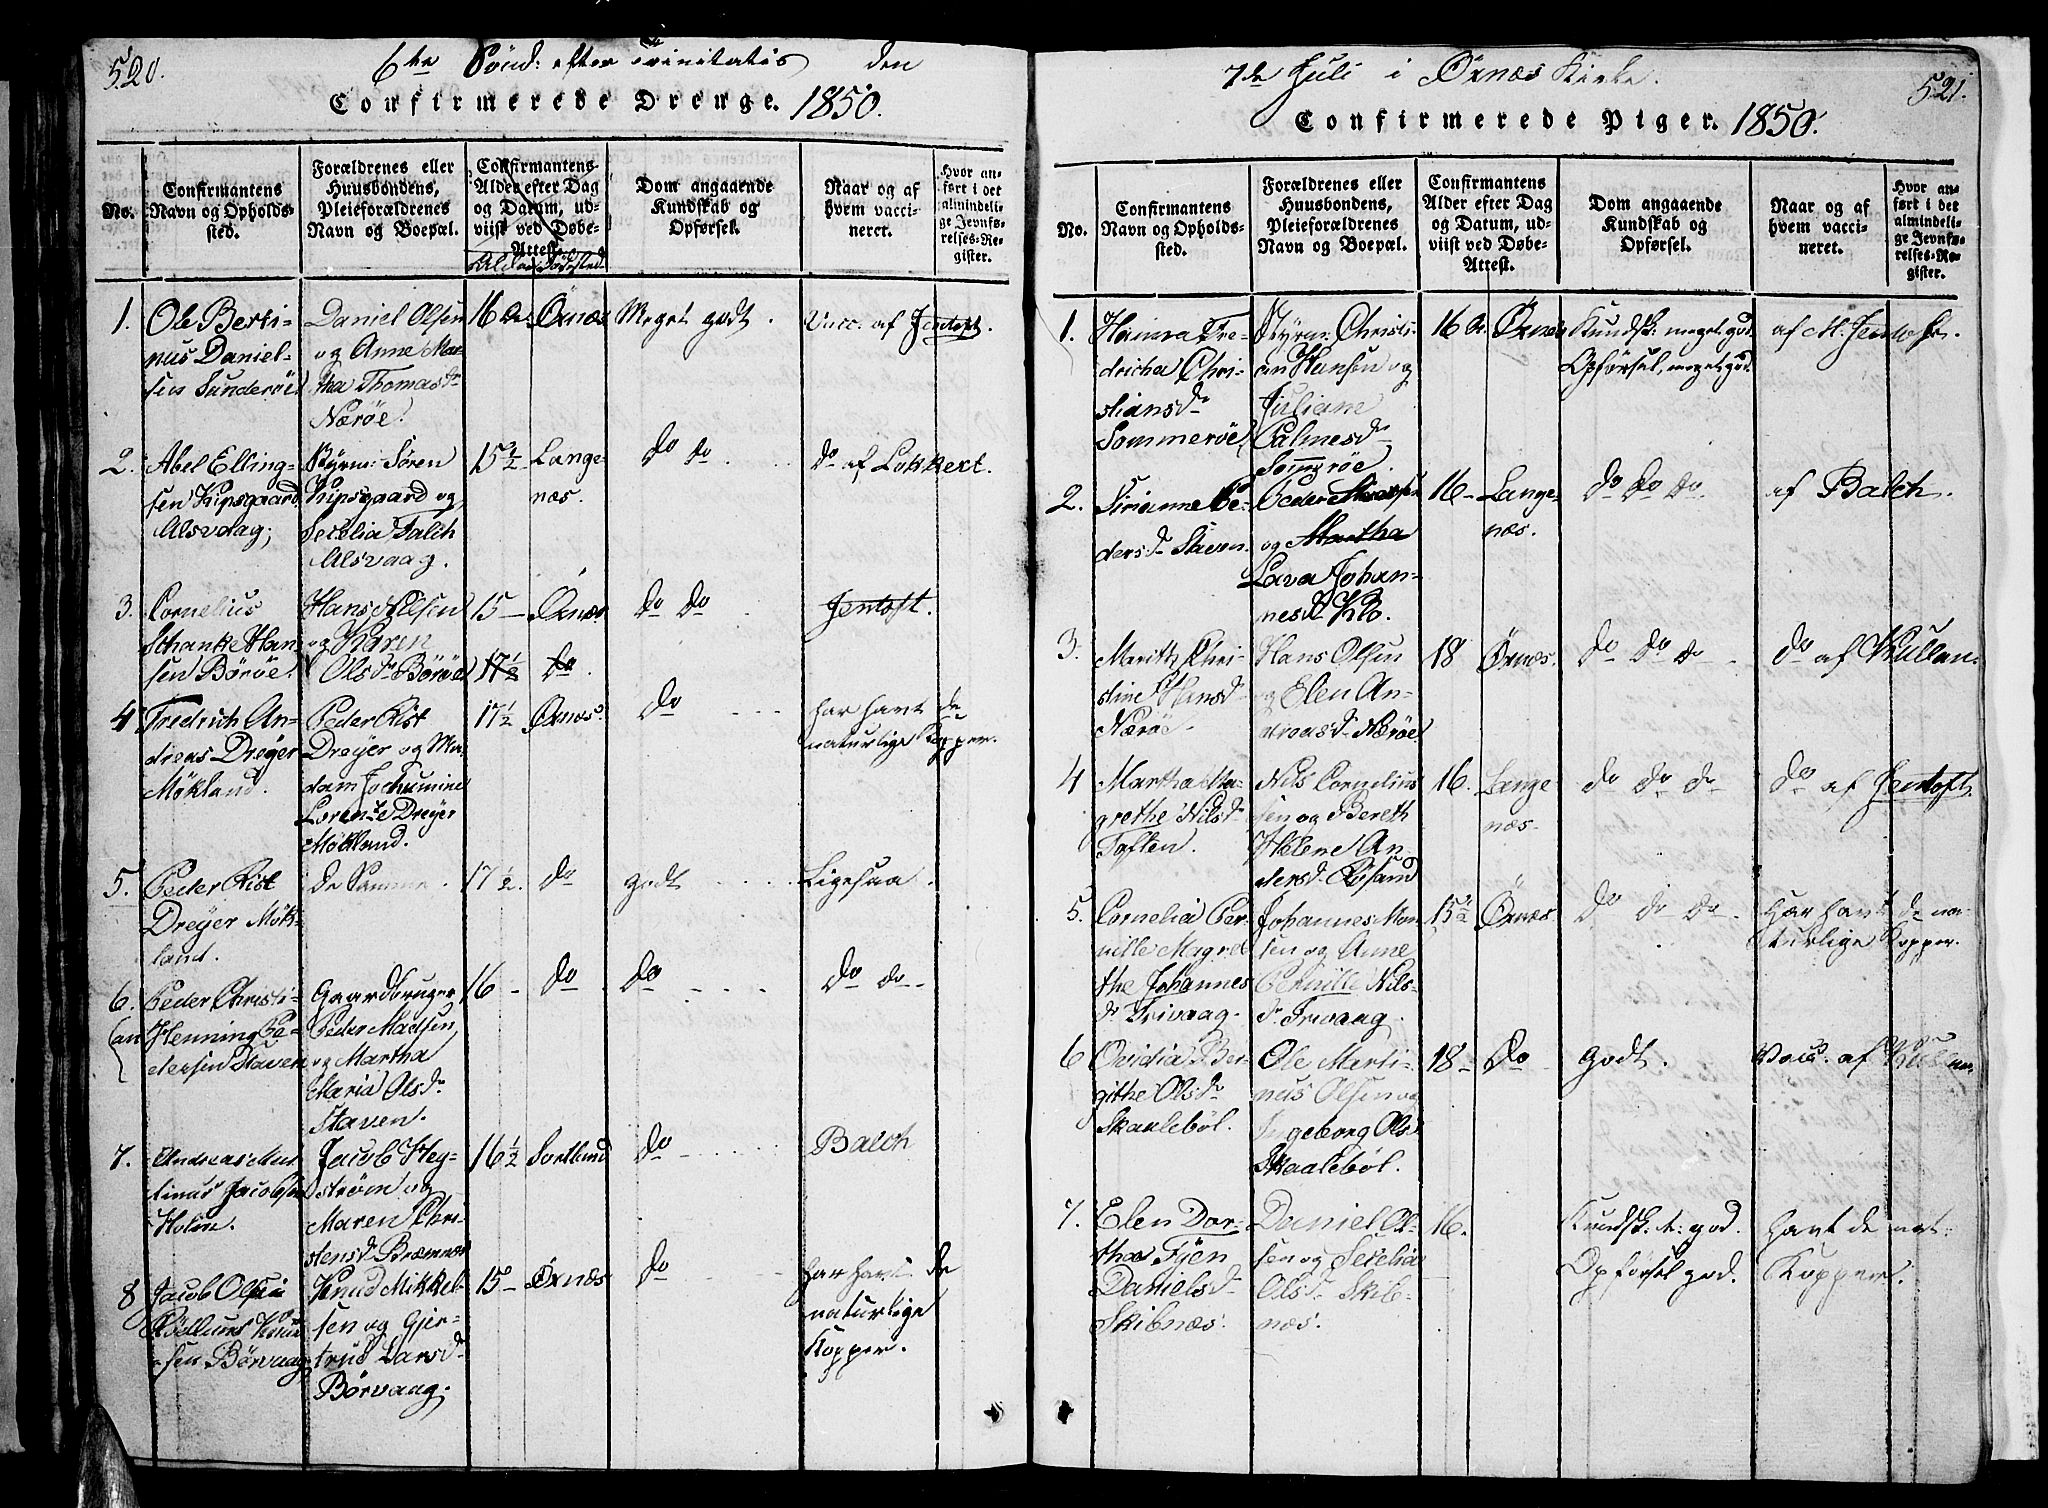 520.
6te Sönd: efter Trinitatis den
Confirmerede Drenge. 1850.
No.
Confirmantens
Navn og Opholds-
sted.
Forældrenes eller
Huusbondens,
Pleieforældrenes
Navn og Boepæl.
Confirmantens
Alder efter Dag
og Datum, ud-
viist ved Døbe-
Attest.
Alder Födested
Dom angaaende
Kundskab og
Opførsel.
Naar og af
hvem vacci-
neret.
Hvor an-
ført i det
almindeli-
ge Jevnfø-
relses-Re-
gister.
1.
Ole Berti-
nus Daniel-
sen Sunderöe
Daniel Olsen
og Anne Mar-
tha Thomasdr
Næröe.
16 Ar
Örnæs
Meget godt.
Vacc. af Jentoft.
2.
Abel Elling-
sen Kipsgaard
Alsvaag;
Styrm: Sören
Kipsgaard og
Secelia Falch
Alsvaag.
15 1/2
Lange-
næs.
do do
do af Lokkert.
3.
Cornelius
Schanke Han-
sen Böröe.
Hans Nilsen
og Karen
Olsdr Böröe
15
Örnæs
do do
Jentoft.
17 1/2
do
4
Fredrich An-
dreas Dreyer
Mökland.
Peder Rist
Dreyer og Ma-
dam Jochumine
Lorenze Dreyer
Mökland.
17 1/2
Örnæs
do
har havt de
naturlige Kopper.
5.
Peder Rist
Dreyer Mök-
land.
De Samme.
17 1/2.
do
godt
Ligesaa.
6.
Peder Christi-
(an Henning Pe-
dersen Staven
Gaardbruger
Peder Madsen
og Martha
Maria Olsdr
Staven.
16
do
do
do do
7.
Andreas Mar-
tinus Jacobsen
Holm.
Jacob Hey-
ström og
Maren Chri-
stensdr Bremnæs
16 1/2
Sortland
do
Balch
8
Jacob Olsen
Böllum Knud
sen Börvaag
Knud Mikkel-
sen og Gjer-
trud Larsd-
Börvaag.
15
Örnæs
do
har havt de
naturlige
Kopper.
521.
7de Juli i Örnæs Kirke.
Confirmerede Piger. 1850.
No.
Confirmantens
Navn og Opholds-
sted.
Forældrenes eller
Huusbondens,
Pleieforældrenes
Navn og Boepæl.
Confirmantens
Alder efter Dag
og Datum, ud-
viist ved Døbe-
Attest.
Dom angaaende
Kundskab og
Opførsel.
Naar og af
hvem vacci-
neret.
Hvor an-
ført i det
almindeli-
ge Jevnfø-
relses-Re-
gister.
1.
Hanna Fre-
dricha Chri-
stiansdr
Sommeröe
Styrm: Christi-
an Hansen og
Juliane
Calmesdr
Somröe.
16 Ar
Örnæs
Kundsk: meget god
Opførsel, meget god
af M. Jentoft.
2.
Sirianne Pe-
dersdr Staven.
Peder
og Martha
Lava Johan-
nesdr Klo.
16
Lange-
næs.
do do do
af Balch.
3.
Marith Chri-
stine Hansdr
Næröe.
Hans Olsen
og Elen An-
dreasdr Næröe.
18
Örnæs.
do do do
do af Kullan.
4
Martha Ma-
grethe Nilsdr
Toften.
Nils Cornelius
sen og Bereth
Helene An-
dersdr Röesand
16.
Lange
næs.
do do do
do af Jentoft.
5.
Cornelia Per-
nille Magre
the Johannes
dr Frivaag.
Johannes Mon
sen og Anne
Pernille Nils-
dr Frivaag.
15 1/2
Örnæs
do do do
Har havt de na-
turlige Kopper.
6
Ovidia Ber-
githe Olsdr
Skaaleböl.
Ole Marti-
nus Olsen og
Ingeborg Olsdr
Skaaleböl.
18
do
godt.
Vacc. af Kullan.
7.
Elen Dor-
thea Fyen
Danielsdr
Skibnæs.
Daniel Ol-
sen og Secelia
Olsdr Skib-
næs.
16.
Kundsk: t: god.
Opförsel god.
havt de nat:
Kopper.